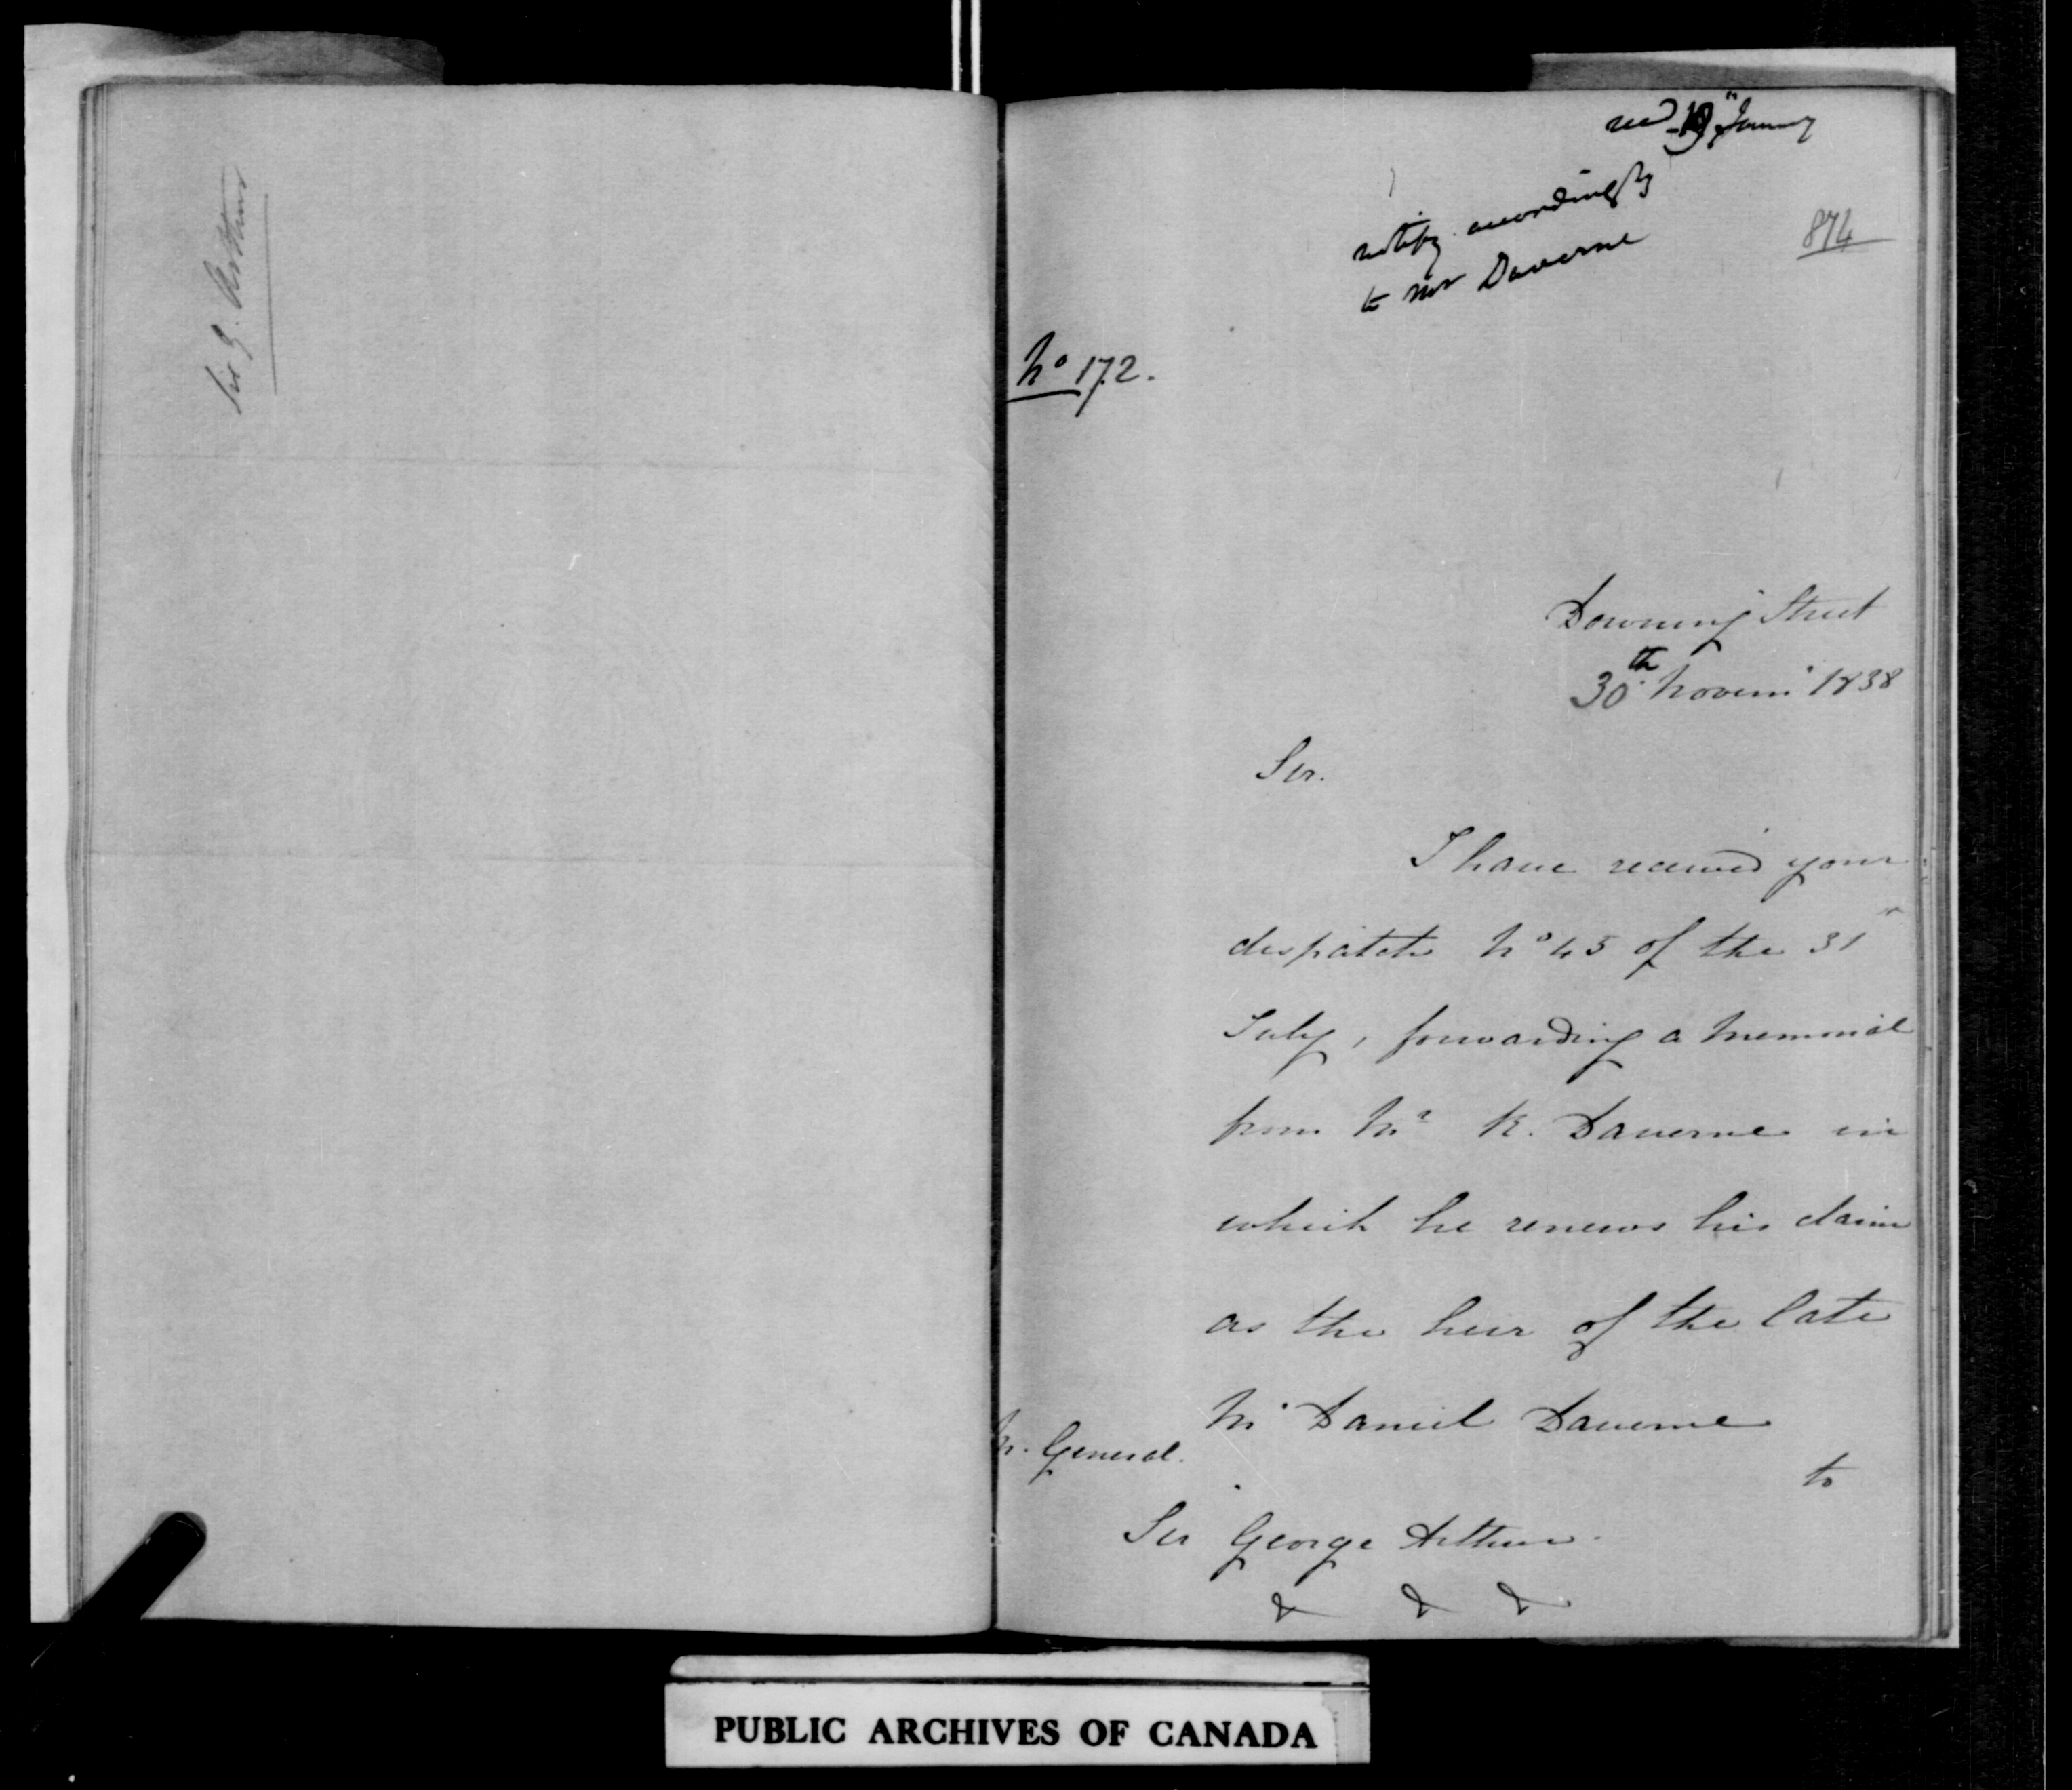 Sir G. Arthur
recd 19th January
notify accordingly
to Mr Daverne
874
No 172.
Downing Street
30th Novem 1838
Sir.
I have received your
despatch No 45 of the 31st
July, forwarding a Memorial
from Mr R. Daverne in
which he renews his claim
as the heir of the late
Mr Daniel Daverne
to
General.
Sir George Arthur.
& & &
PUBLIC ARCHIVES OF CANADA